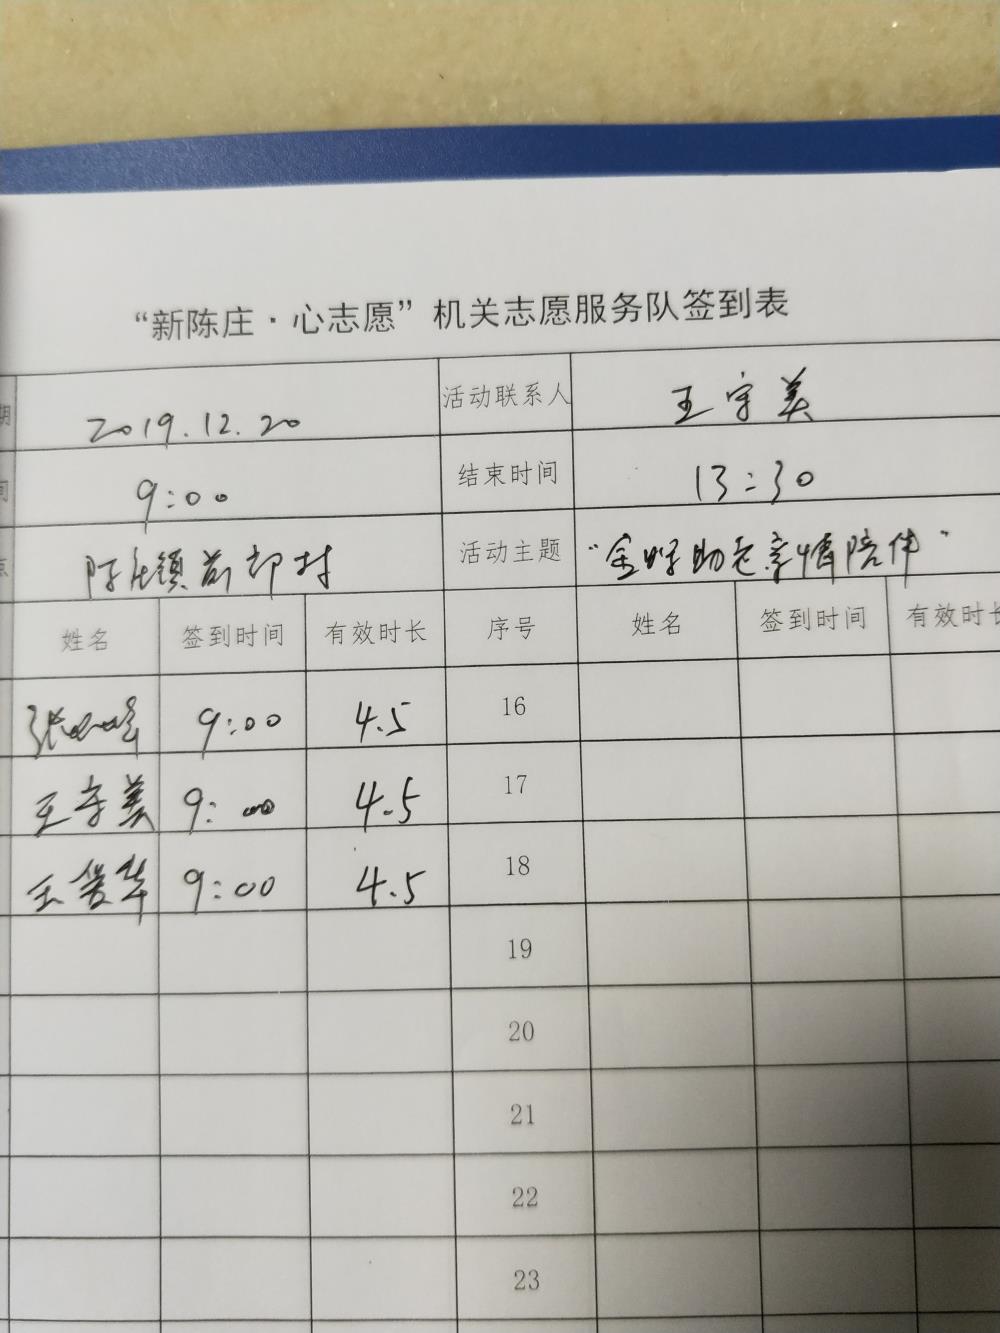 “新陈庄·心志愿”机关志愿服务队签到表
期 2019.12.20 活动联系人 王守美
间 9:00 结束时间 13:30
点 陈庄镇前邵村 活动主题 “金晖助老亲情陪伴”
姓名 签到时间 有效时长 序号 姓名 签到时间 有效时长
9:00 4.5 16
王守美 9:00 4.5 17
王爱华 9:00 4.5 18
19
20
21
22
23